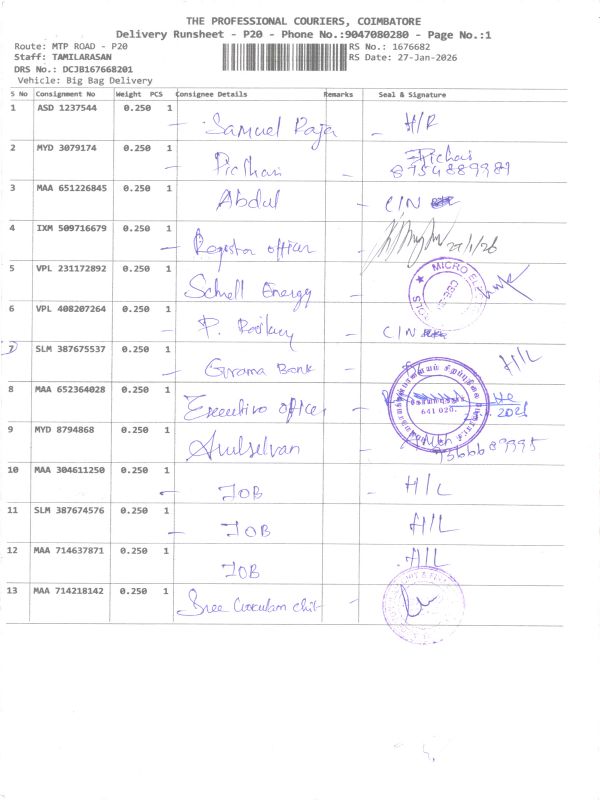 THE PROFESSIONAL COURIERS, COIMBATORE
Delivery Runsheet - P20 - Phone No.:9047080280 - Page No.:1
Route: MTP ROAD - P20 RS No.: 1676682
Staff: TAMILARASAN RS Date: 27-Jan-2026
DRS No.: DCJB167668201
Vehicle: Big Bag Delivery
S No Consignment No Weight PCS Consignee Details Remarks Seal & Signature
1 ASD 1237544 0.250 1 Samuel Raja H/R
2 MYD 3079174 0.250 1 Pichai
8754889989
3 MAA 651226845 0.250 1 Abdul CIN
4 IXM 509716679 0.250 1 officer 27/1/26
5 VPL 231172892 0.250 1 Schnell Energy MICRO
6 VPL 408207264 0.250 1 P. CIN
SLM 387675537 0.250 1 Grama Bank H/L
8 MAA 652364028 0.250 1 Executive officer 641 020.
9 MYD 8794868 0.250 1 Arulselvan
10 MAA 304611250 0.250 1 JOB H/L
11 SLM 387674576 0.250 1 JOB H/L
12 MAA 714637871 0.250 1 JOB H/L
13 MAA 714218142 0.250 1 Sree chit